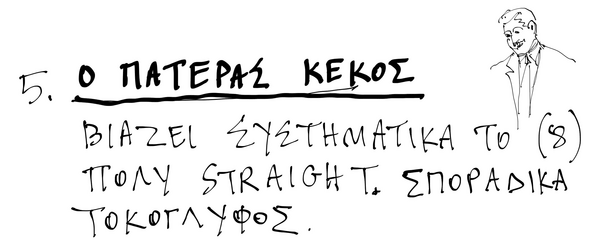 5. Ο ΠΑΤΕΡΑΣ ΚΕΚΟΣ
ΒΙΑΖΕΙ ΣΥΣΤΗΜΑΤΙΚΑ ΤΟ (8)
ΠΟΛΥ STRAIGHT. ΣΠΟΡΑΔΙΚΑ
ΤΟΚΟΓΛΥΦΟΣ.